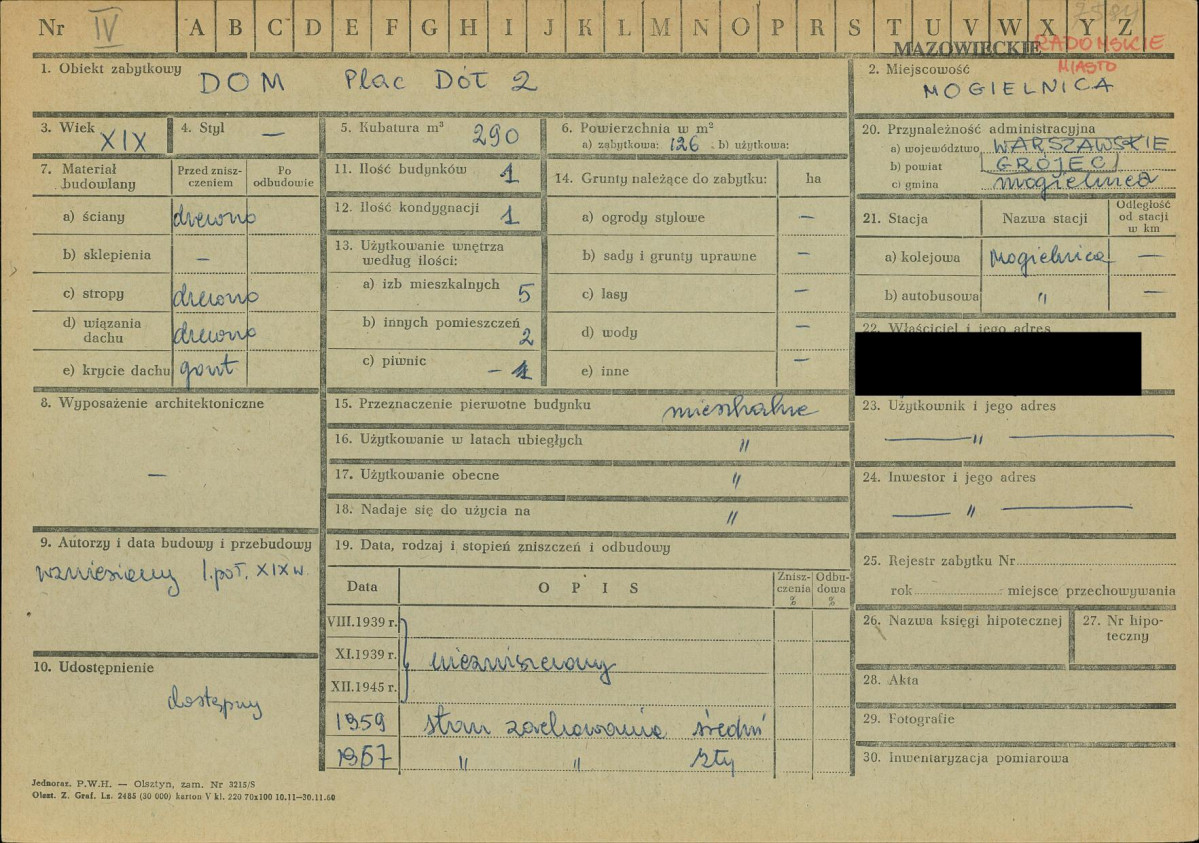 Nr IV A B C D E F G H I J K L M N O P R S T U V W X Y Z
MAZOWIECKIE RADOMSKIE
MIASTO
1. Obiekt zabytkowy DOM Plac Dół 2
2. Miejscowość
MOGIELNICA
3. Wiek XIX
4. Styl —
5. Kubatura m³ 290
6. Powierzchnia w m²
a) zabytkowa: 126 . b) użytkowa:
7. Materiał budowlany
Przed zniszczeniem
Po odbudowie
a) ściany drewno
b) sklepienia —
c) stropy drewno
d) wiązania dachu drewno
e) krycie dachu gont
8. Wyposażenie architektoniczne
—
9. Autorzy i data budowy i przebudowy
wzniesiony I. poł. XIX w.
10. Udostępnienie
dostępny
11. Ilość budynków 1
12. Ilość kondygnacji 1
13. Użytkowanie wnętrza
według ilości:
a) izb mieszkalnych 5
b) innych pomieszczeń 2
c) piwnic – 1
14. Grunty należące do zabytku: ha
a) ogrody stylowe —
b) sady i grunty uprawne —
c) lasy —
d) wody —
e) inne —
15. Przeznaczenie pierwotne budynku mieszkalne
16. Użytkowanie w latach ubiegłych "
17. Użytkowanie obecne "
18. Nadaje się do użycia na "
19. Data, rodzaj i stopień zniszczeń i odbudowy
Data OPIS Zniszczenia % Odbudowa %
VIII.1939 r.
XI.1939 r. niezniszczony
XII.1945 r.
1959 stan zachowania średni
1967 " " zły
20. Przynależność administracyjna
a) województwo WARSZAWSKIE
b) powiat GRÓJEC
c) gmina Mogielnica
21. Stacja Nazwa stacji Odległość od stacji w km
a) kolejowa Mogielnica —
b) autobusowa " —
22. Właściciel i jego adres
23. Użytkownik i jego adres
— " —
24. Inwestor i jego adres
— " —
25. Rejestr zabytku Nr
rok : miejsce przechowywania
26. Nazwa księgi hipotecznej
27. Nr hipoteczny
28. Akta
29. Fotografie
30. Inwentaryzacja pomiarowa
Jednoraz. P.W.H. — Olsztyn, zam. Nr 3215/S
Olszt. Z. Graf. Lz. 2485 (30 000) karton V kl. 220 70x100 10.11—30.11.60